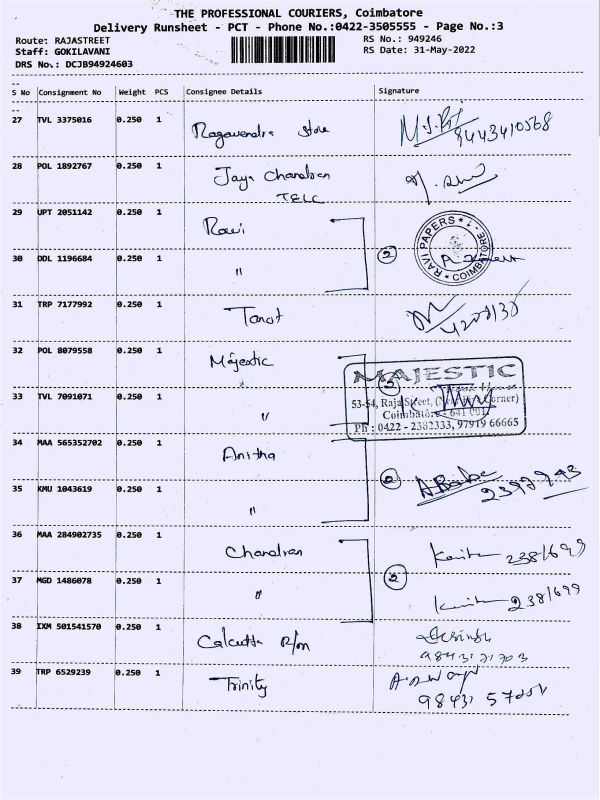 THE PROFESSIONAL COURIERS, Coimbatore
Delivery Runsheet - PCT - Phone No.:0422-3505555 - Page No.:3
Route: RAJASTREET
RS No.: 949246
Staff: GOKILAVANI
RS Date: 31-May-2022
DRS No.: DCJB94924603
S No Consignment No Weight PCS Consignee Details Signature
27 TVL 3375016 0.250 1 Ragavendra Store 9443410568
28 POL 1892767 0.250 1 Jaya Chandran
TELC
29 UPT 2051142 0.250 1 Ravi
RAVI PAPERS * COIMBATORE-1 *
30 DDL 1196684 0.250 1 " 2
31 TRP 7177992 0.250 1
32 POL 8079558 0.250 1 Majestic
MAJESTIC
33 TVL 7091071 0.250 1 "
53-54, Raja Street, Corner)
Coimbatore - 641 001
Ph : 0422 - 2382333, 97919 66665
34 MAA 565352702 0.250 1 Anitha
35 KMU 1043619 0.250 1 " 2
36 MAA 284902735 0.250 1 Chandran 2381699
37 MGD 1486078 0.250 1 " 2 2381699
38 IXM 501541570 0.250 1 Calcutta R/m
39 TRP 6529239 0.250 1 Trinity